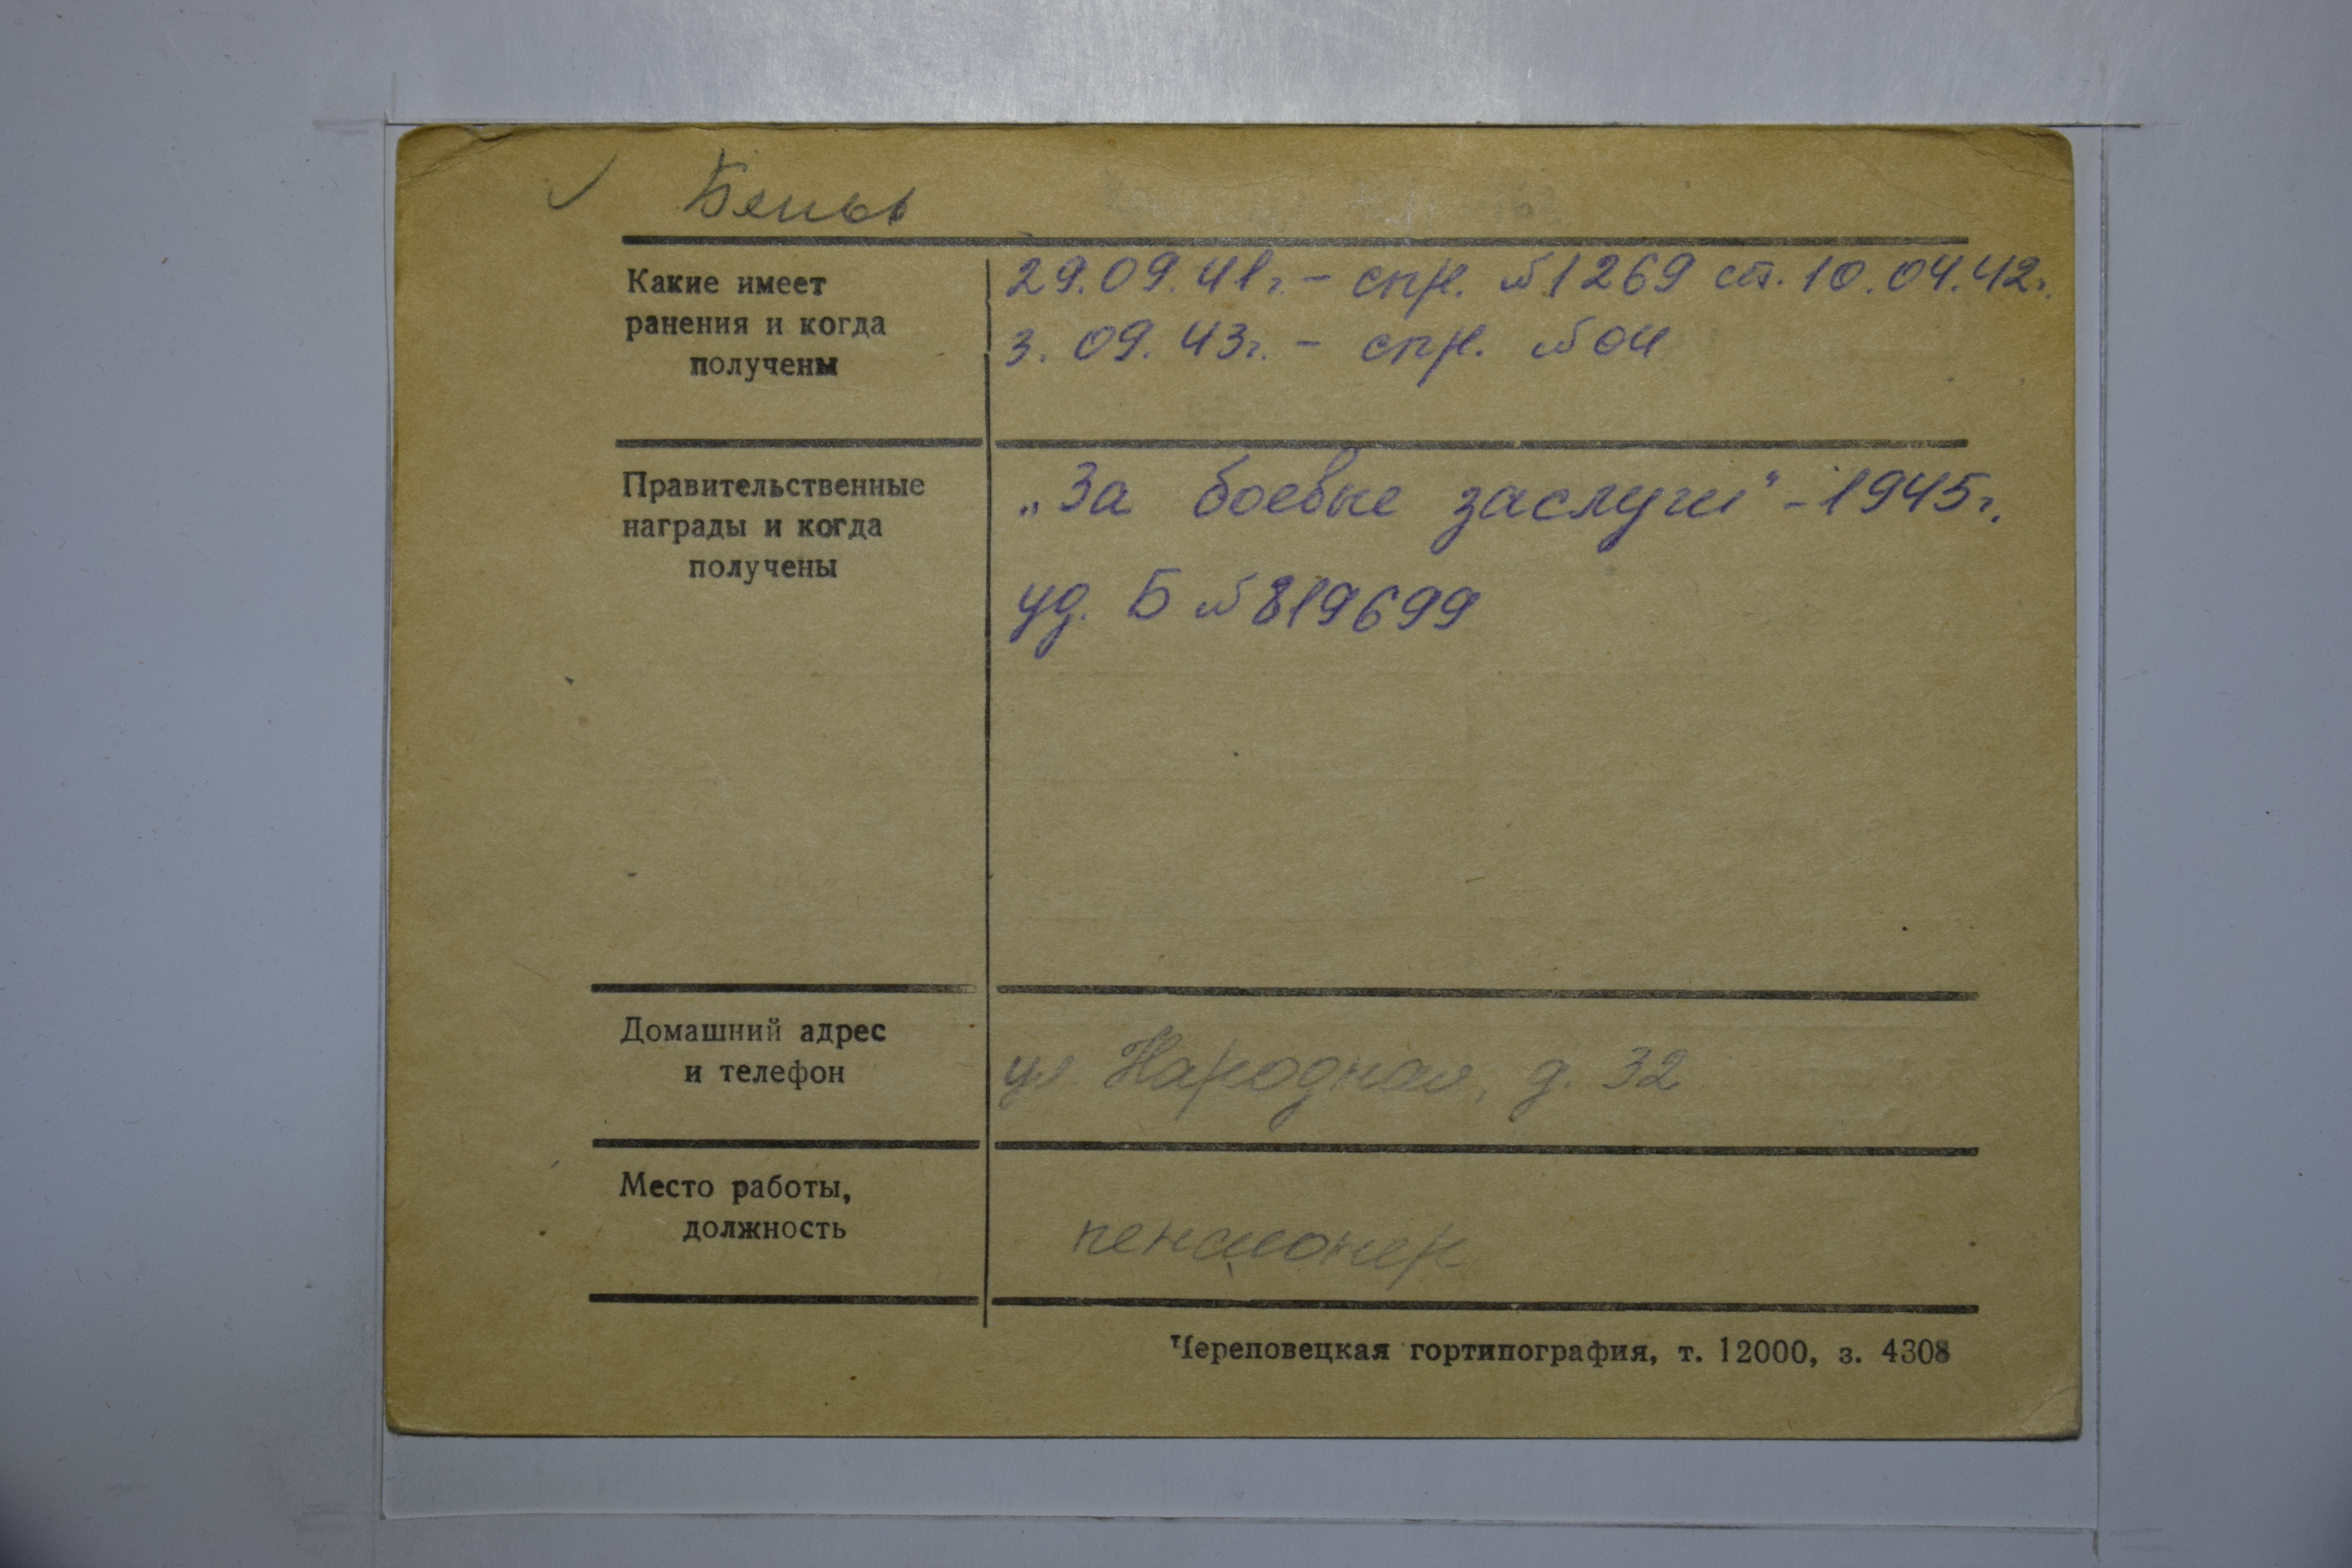 Какие имеет
ранения и когда
получены
29.09.41г. - спр. №1269 от. 10.04.42г.
3. 09. 43г. - спр. №04
Правительственные
награды и когда
получены
„За боевые заслуги" - 1945г.
уд. Б №819699
Домашний адрес
и телефон
ул Народная, д. 32
Место работы,
должность
пенсионер
Череповецкая гортипография, т. 12000, з. 4308